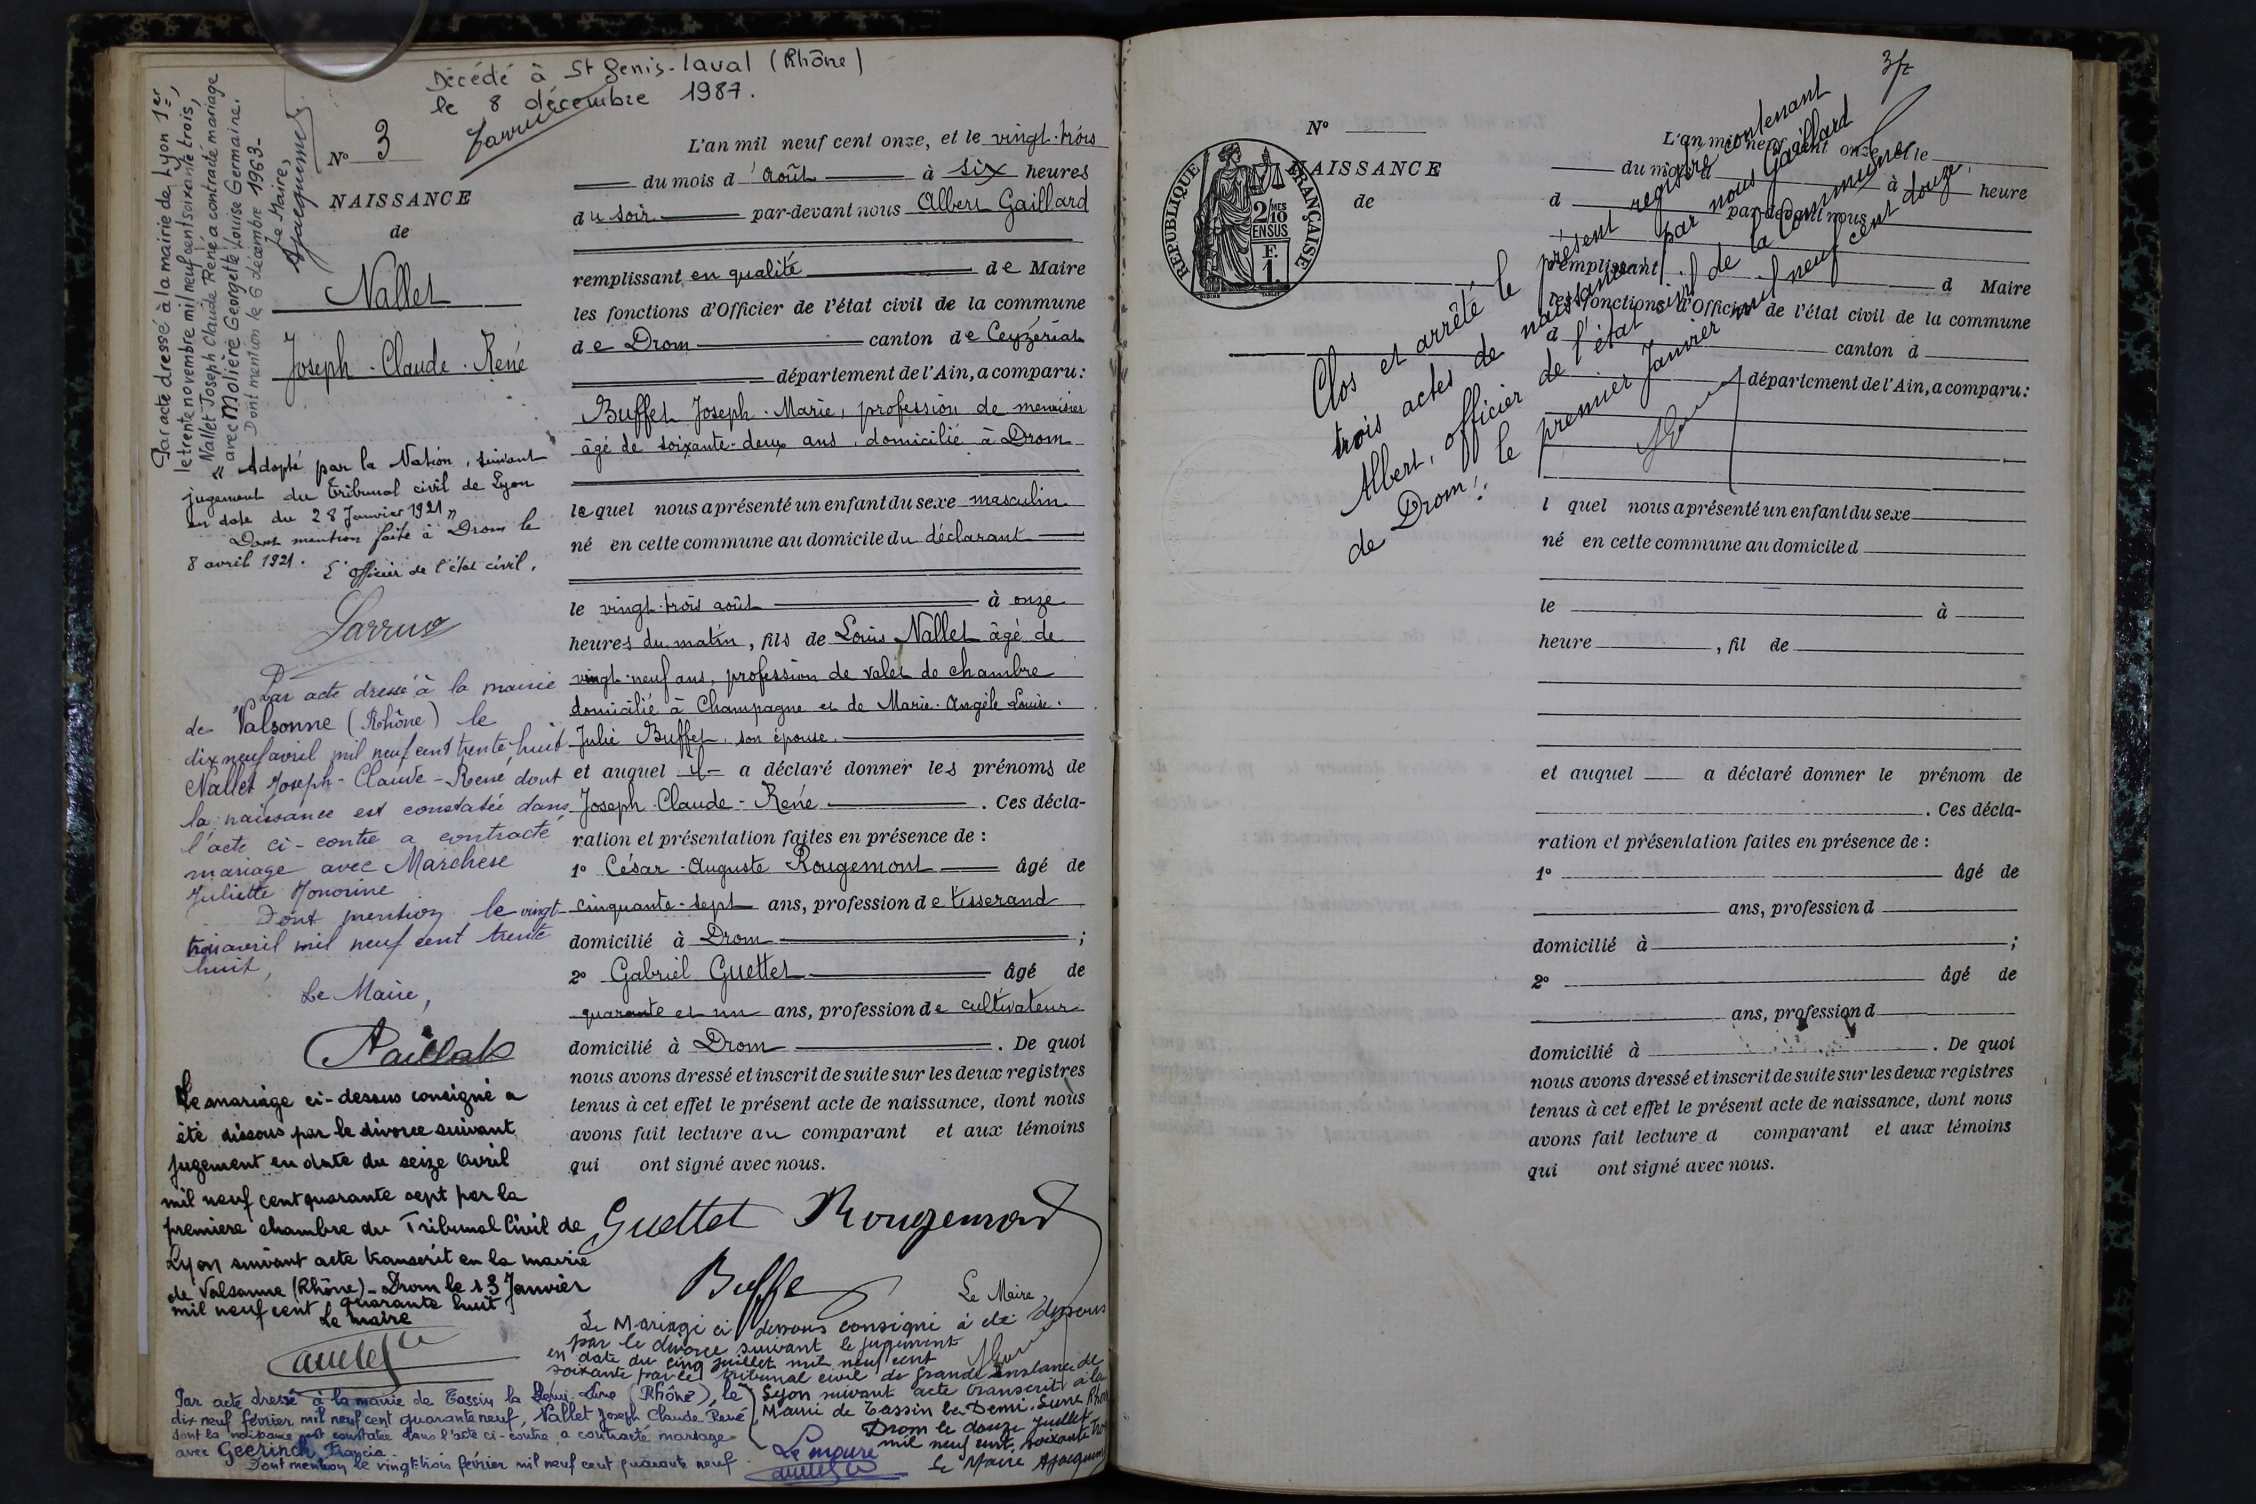 Décédé à St Genis-Laval (Rhône)
le 8 décembre 1987.
Par acte dressé à la mairie de Lyon 1er,
le trente novembre mil neuf cent soixante trois,
Nallet Joseph Claude René a contracté mariage
avec Molière Georgette Louise Germaine.
Dont mention le 6 décembre 1963-
Le Maire,
AJacquemet
N° 3
NAISSANCE
de
Nallet
Joseph-Claude-René
"Adopté par la Nation, suivant
jugement du tribunal civil de Lyon
en date du 28 Janvier 1921"
Dont mention faite à Drom le
8 avril 1921. L'officier de l'état civil,
Par acte dressé à la mairie
de Valsonne (Rhône) le
dix neuf avril mil neuf cent trente huit
Nallet Joseph-Claude-René, dont
la naissance est constatée dans
l'acte ci-contre a contracté
mariage avec Marchese
Juliette Honorine
Dont mention le vingt-
trois avril mil neuf cent trente
huit,
Le Maire,
Le mariage ci-dessus consigné a
été dissous par le divorce suivant
jugement en date du seize avril
mil neuf cent quarante sept par la
premiere chambre du Tribunal Civil de
Lyon suivant acte transcrit en la mairie
de Valsonne (Rhône)_ Drom le 13 Janvier
mil neuf cent quarante huit
Le maire
Par acte dressé à la mairie de Tassin la Demi-Lune (Rhône), le
dix neuf février mil neuf cent quarante neuf, Nallet Joseph Claude René
dont la naissance est constatée dans l'acte ci-contre a contracté mariage
avec Geerinck Francia.
Dont mention le vingt-trois février mil neuf cent quarante neuf
Le maire
L'an mil neuf cent onze, et le vingt-trois
du mois d'août à six heures
du soir par-devant nous Albert Gaillard
remplissant en qualité de Maire
les fonctions d'Officier de l'état civil de la commune
de Drom canton de Ceyzériat
département de l'Ain, a comparu:
Buffet Joseph-Marie, profession de menuisier
âgé de soixante-deux ans, domicilié à Drom
lequel nous a présenté un enfant du sexe masculin
né en cette commune au domicile du déclarant
le vingt-trois août à onze
heures du matin, fils de Louis Nallet âgé de
vingt-neuf ans, profession de valet de chambre
domicilié à Champagne et de Marie-Angèle Louise-
Julie Buffet, son épouse.
et auquel il a déclaré donner les prénoms de
Joseph-Claude-René. Ces décla-
ration et présentation faites en présence de :
1° César-Auguste Rougemont âgé de
cinquante-sept ans, profession de tisserand
domicilié à Drom ;
2° Gabriel Guettet âgé de
quarante et un ans, profession de cultivateur
domicilié à Drom. De quoi
nous avons dressé et inscrit de suite sur les deux registres
tenus à cet effet le présent acte de naissance, dont nous
avons fait lecture au comparant et aux témoins
qui ont signé avec nous.
Guettet Rougemont
Buffet
Le Maire
Le Mariage ci dessous consigné à été dissous
par le divorce suivant le jugement
en date du cinq juillet mil neuf cent
soixante par le tribunal civil de Grande Instance de
Lyon suivant acte transcrit à la
Mairie de Tassin la Demi-Lune Rhône
Drom le douze Juillet
mil neuf cent soixante trois
Le Maire AJacquemet
N°
NAISSANCE
de
RÉPUBLIQUE FRANÇAISE
2/10 MES
EN SUS
F.
1
L'an mil neuf cent onze, et le
du mois d à heure
d par-devant nous
remplissant d Maire
les fonctions d'Officier de l'état civil de la commune
d canton d
département de l'Ain, a comparu:
Clos et arrêté le présent registre contenant
trois actes de naissance, par nous Gaillard
Albert, officier de l'état civil de la Commune
de Drom, le premier Janvier mil neuf cent douze,
l quel nous a présenté un enfant du sexe
né en cette commune au domicile d
le à
heure , fil de
et auquel a déclaré donner le prénom de
. Ces décla-
ration et présentation faites en présence de :
1° âgé de
ans, profession d
domicilié à ;
2° âgé de
ans, profession d
domicilié à . De quoi
nous avons dressé et inscrit de suite sur les deux registres
tenus à cet effet le présent acte de naissance, dont nous
avons fait lecture a comparant et aux témoins
qui ont signé avec nous.